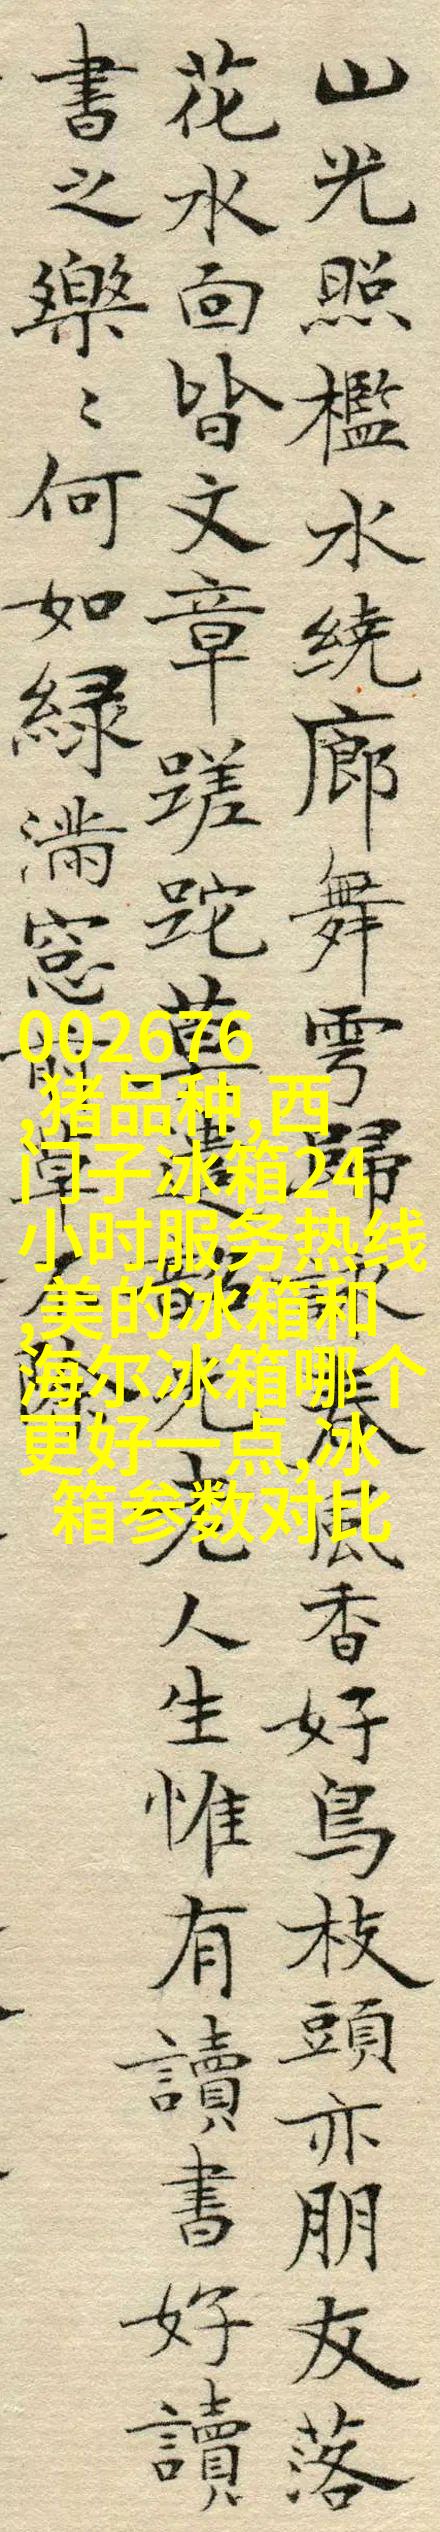 山光照檻水繞廊舞雩歸詠春風香好鳥枝頭亦朋友落
花水面皆文章蹉跎莫遣韶光老人生惟有讀書好讀
書之樂〻何如綠滿窓前草不除
002676
,猪品种,西
门子冰箱24
小时服务热线
,美的冰箱和
海尔冰箱哪个
更好一点,冰
箱参数对比